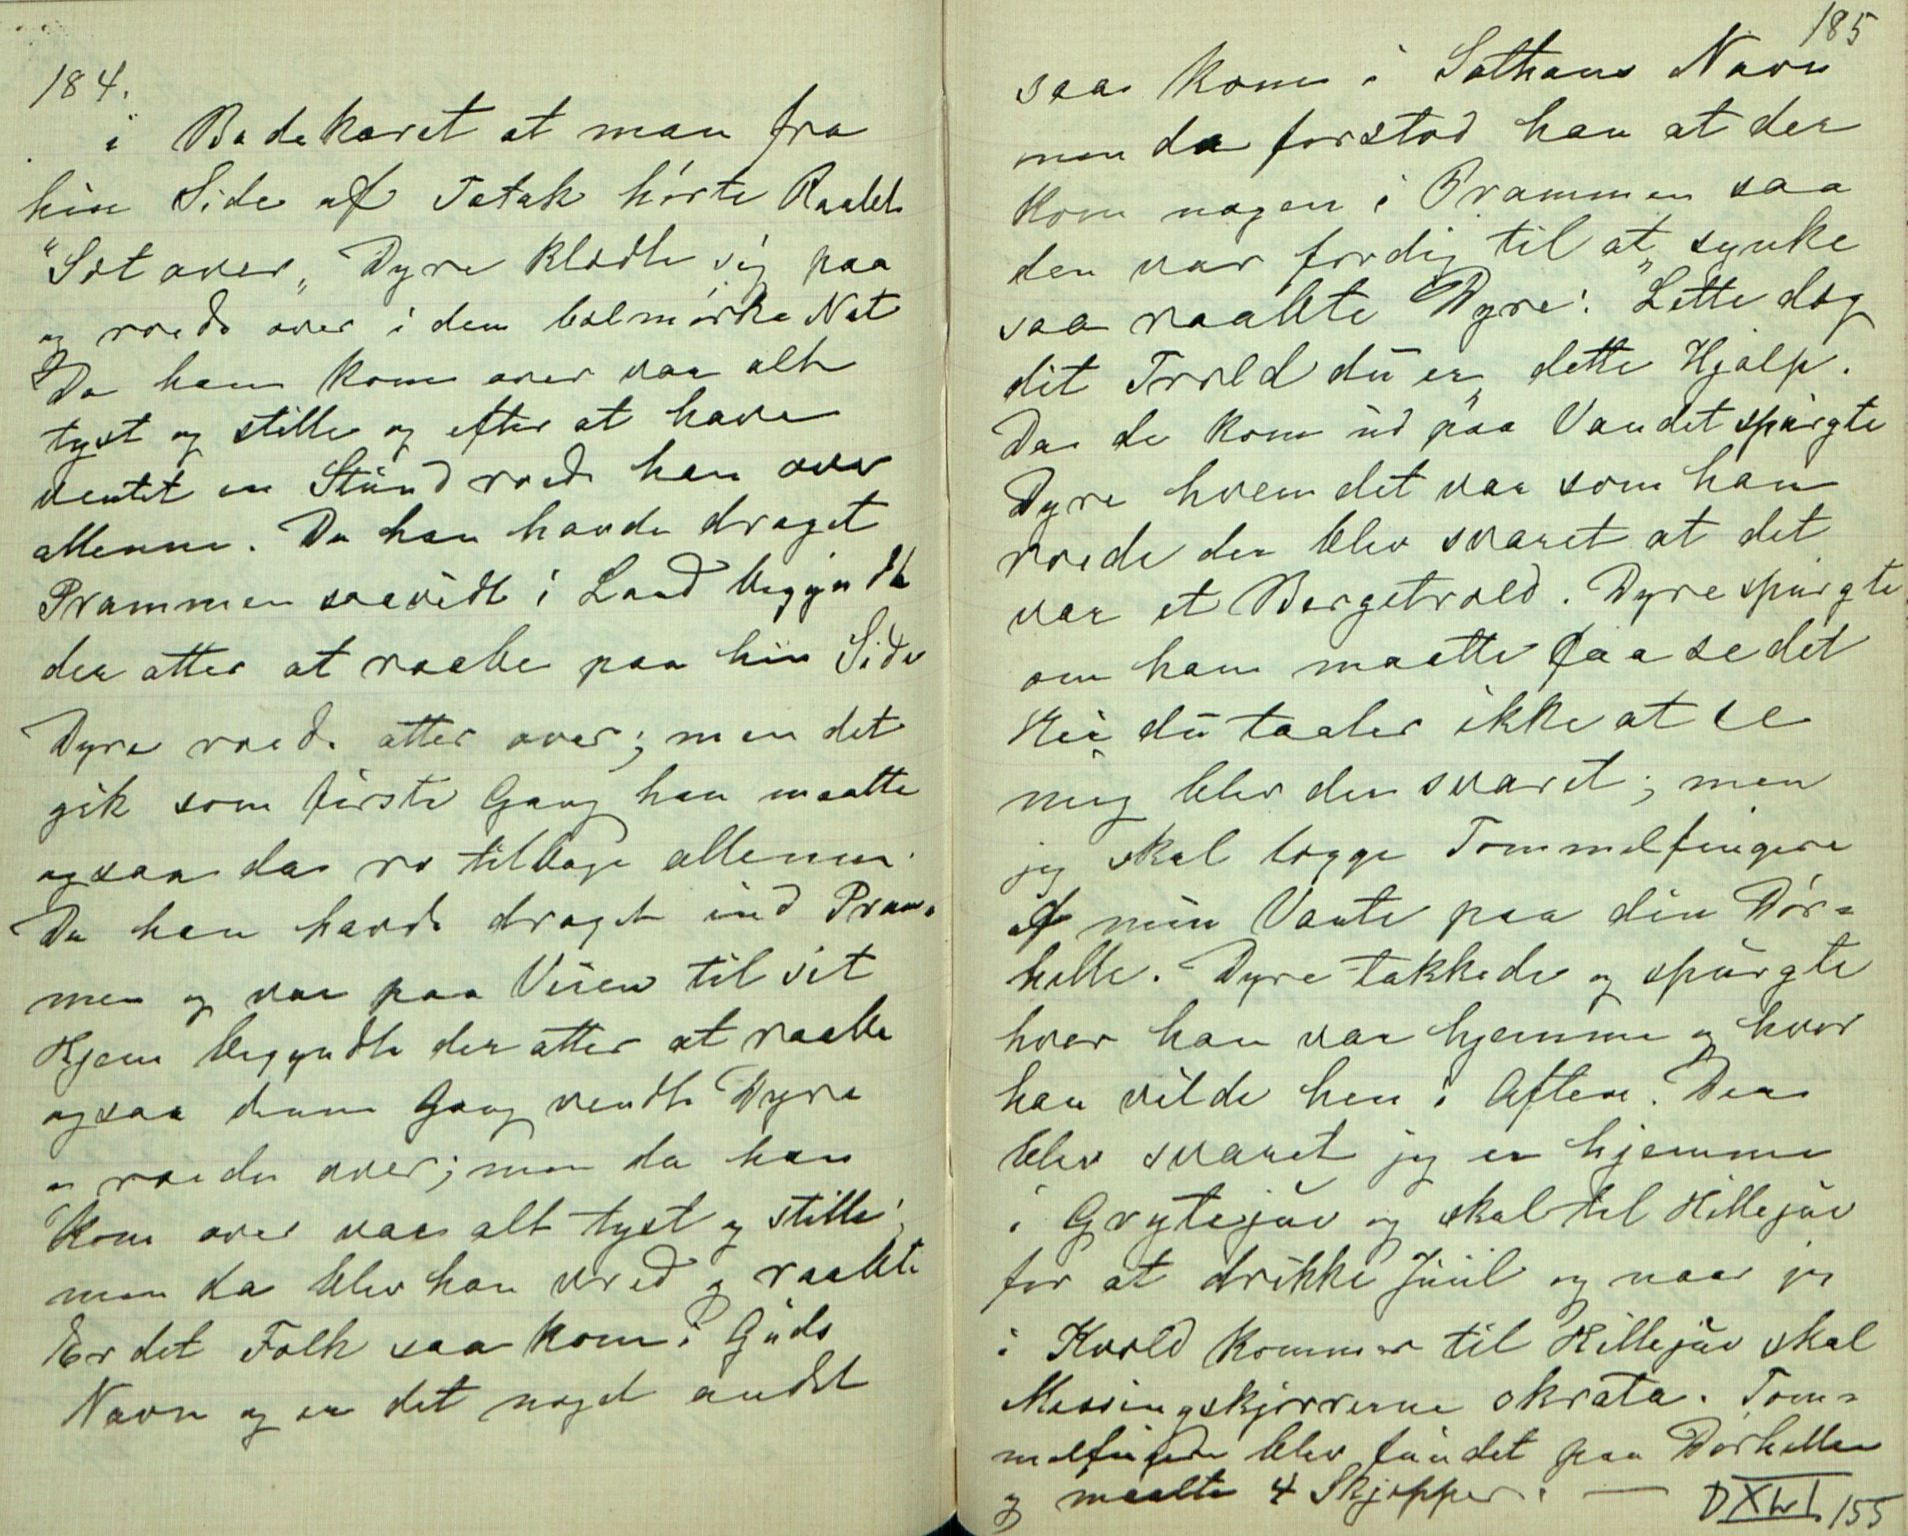 184.
i Badekaret at man fra
hin Side af Totak hørte Raabet
"Sæt over„ Dyre klædte sig paa
og roede over i den bælmørke Nat
Da han kom over var alt
tyst og stille og efter at have
ventet en Stund roede han over
allenne. Da han havde draget
Prammen saavidt i Land begyndte
der atter at raabe paa hin Side
Dyre roede atter over; men det
gik som første Gang han maatte
ogsaa da ro tilbage allenne.
Da han havde draget ind Pram-
men og var paa Veien til sit
Hjem begyndte der atter at raabe
ogsaa denne Gang vendte Dyre
og roede over; men da han
kom over var alt tyst og stille;
men da blev han vred og raabte
Er det Folk saa kom i Guds
Navn og er det noget andet
185
saa kom i Sathans Navn
men da forstod han at der
kom nogen i Prammen saa
den var færdig til at synke
saa raabte Dyre: "Lette dog
dit Trold du er„ dette Hjalp.
Da de kom ud paa Vandet spurgte
Dyre hvem det var som han
roede der blev svaret at det
var et Bergetrold. Dyre spurgte
om han maatte faa se det
Nei du taaler ikke at se
mig blev der svaret; men
jeg skal lægge Tommelfingere
af min Vante paa din Dør=
helle. Dyre takkede og spurgte
hvor han var hjemme og hvor
han vilde hen i Aften. Der
blev svaret jeg er hjemme
i Grytejuv og skal til Hillejuv
for at drikke Juul og naar jeg
i Kvæld kommer til Hillejuv skal
Messingskjerrerne skrata. Tom=
melfingere blev fundet paa Dørhellen
og maalte 4 Skjepper. —
DXLVI. 155